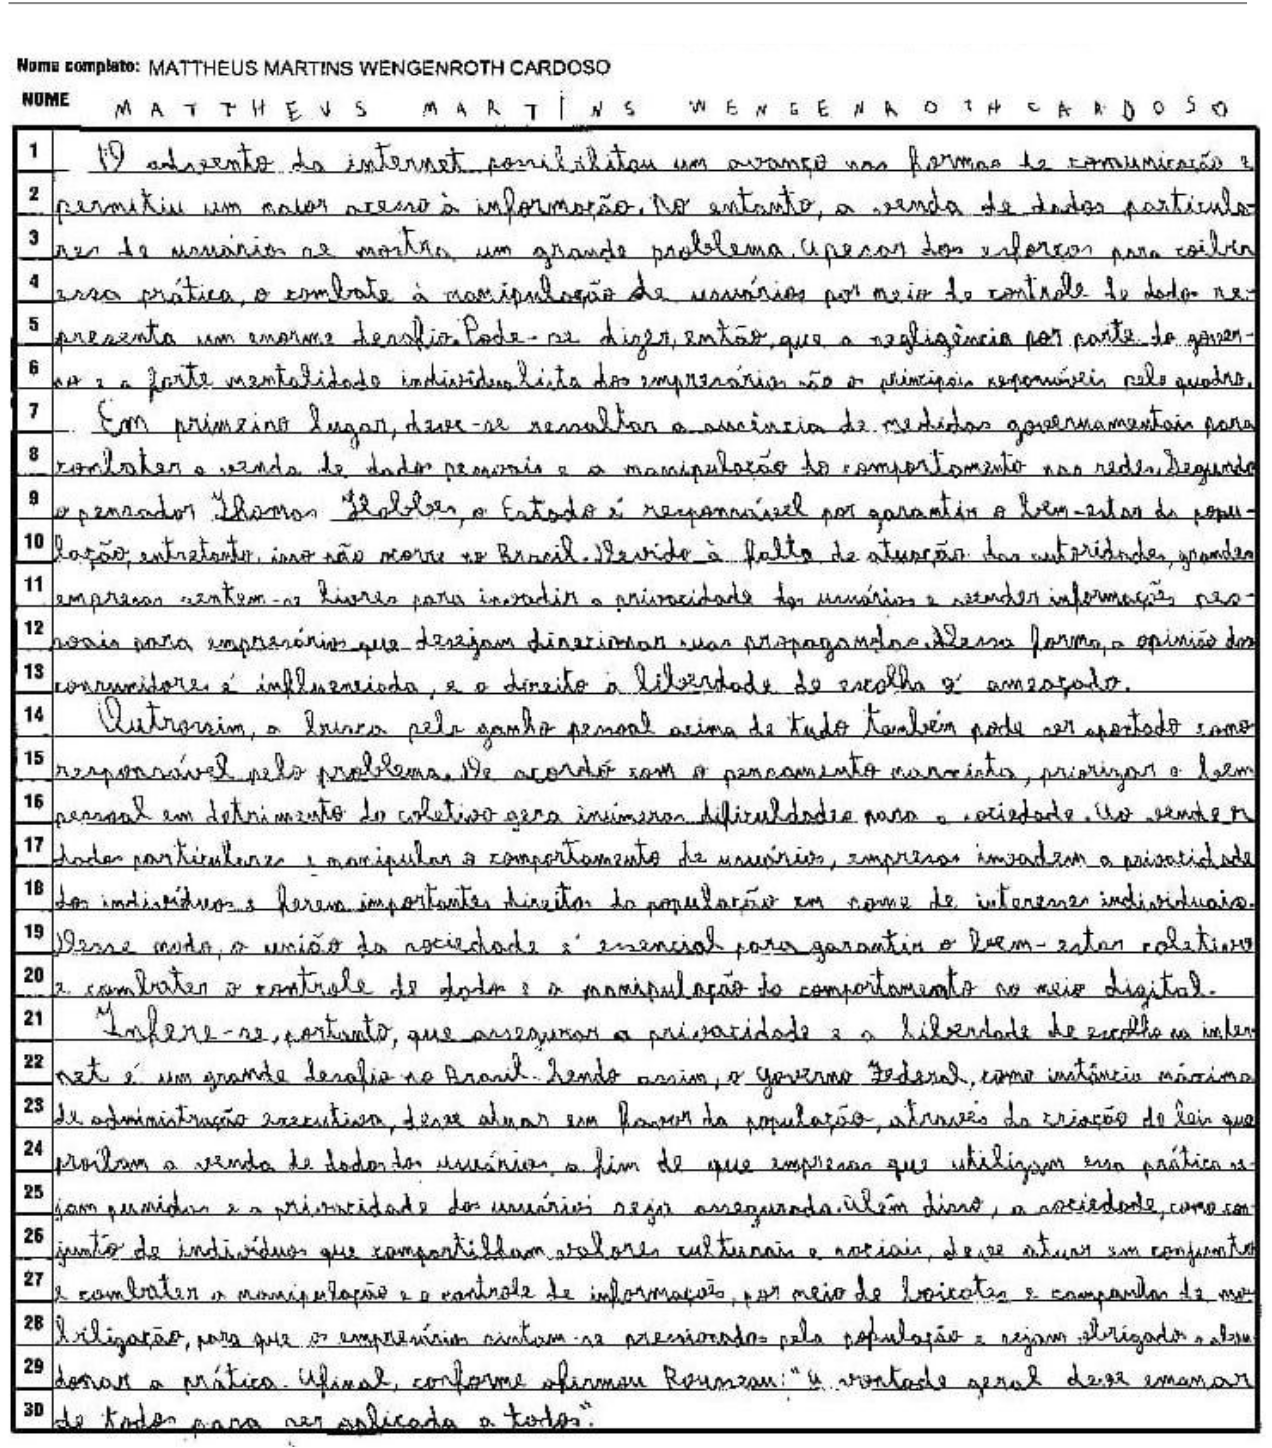 Nome completo: MATTHEUS MARTINS WENGENROTH CARDOSO
NOME MATTHEUS MARTINS WENGENROTH CARDOSO
1 O advento da internet possibilitou um avanço nas formas de comunicação e
2 permitiu um maior acesso à informação. No entanto, a venda de dados particula-
3 res de usuários se mostra um grande problema. Apesar dos esforços para coibir
4 essa prática, o combate à manipulação de usuários por meio de controle de dados re-
5 presenta um enorme desafio. Pode-se dizer, então, que a negligência por parte do gover-
6 no e a forte mentalidade individualista dos empresários são os principais responsáveis pelo quadro.
7 Em primeiro lugar, deve-se ressaltar a ausência de medidas governamentais para
8 combater a venda de dados pessoais e a manipulação do comportamento nas redes. Segundo
9 o pensador Thomas Hobbes, o Estado é responsável por garantir o bem-estar da popu-
10 lação, entretanto, isso não ocorre no Brasil. Devido à falta de atuação das autoridades, grandes
11 empresas sentem-se livres para invadir a privacidade dos usuários e vender informações pes-
12 soais para empresários que desejam direcionar suas propagandas. Dessa forma, a opinião dos
13 consumidores é influenciada, e o direito à liberdade de escolha é ameaçado.
14 Outrossim, a busca pelo ganho pessoal acima de tudo também pode ser apontado como
15 responsável pelo problema. De acordo com o pensamento marxista, priorizar o bem
16 pessoal em detrimento do coletivo gera inúmeras dificuldades para a sociedade. Ao vender
17 dados particulares e manipular o comportamento de usuários, empresas invadem a privacidade
18 dos indivíduos e ferem importantes direitos da população em nome de interesses individuais.
19 Desse modo, a união da sociedade é essencial para garantir o bem-estar coletivo
20 e combater o controle de dados e a manipulação do comportamento no meio digital.
21 Infere-se, portanto, que assegurar a privacidade e a liberdade de escolha na inter-
22 net é um grande desafio no Brasil. Sendo assim, o Governo Federal, como instância máxima
23 de administração executiva, deve atuar em favor da população, através da criação de leis que
24 proíbam a venda de dados dos usuários, a fim de que empresas que utilizam essa prática se-
25 jam punidas e a privacidade dos usuários seja assegurada. Além disso, a sociedade, como con-
26 junto de indivíduos que compartilham valores culturais e sociais, deve atuar em conjunto
27 e combater a manipulação e o controle de informações, por meio de boicotes e campanhas de mo-
28 bilização, para que os empresários sintam-se pressionados pela população e sejam obrigados a aban-
29 donar a prática. Afinal, conforme afirmou Rousseau: "A vontade geral deve emanar
30 de todos para ser aplicada a todos".